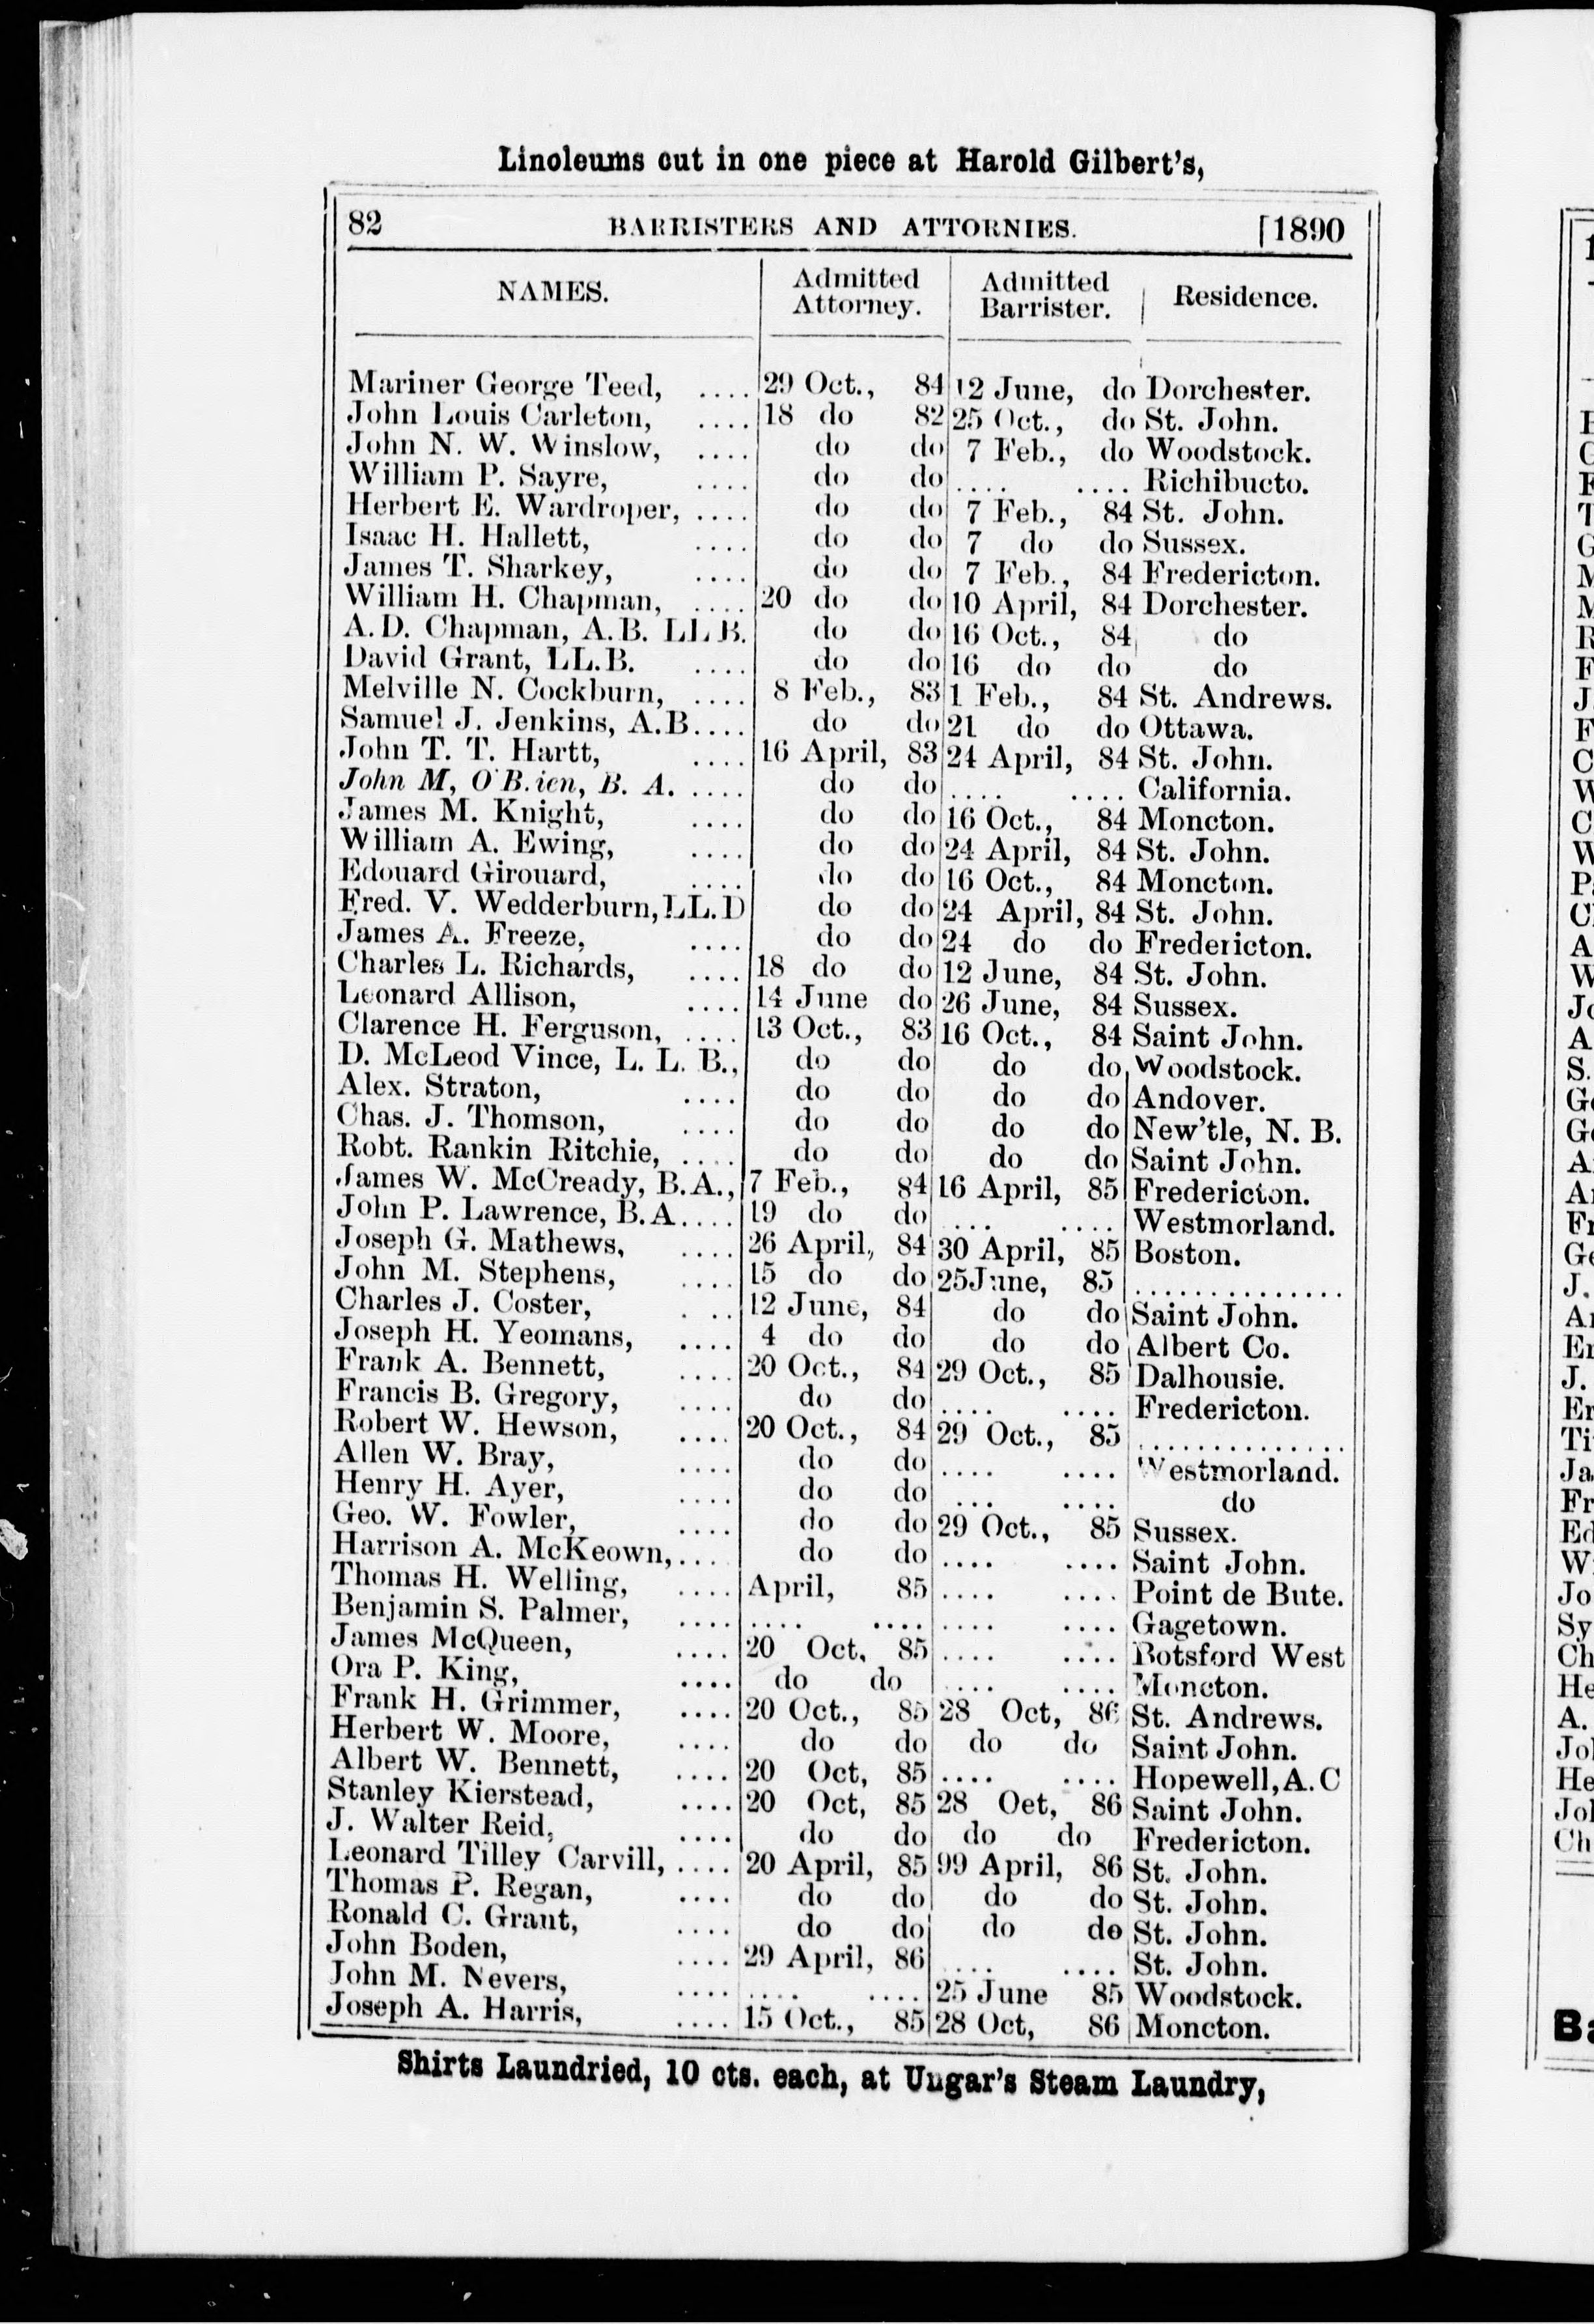 Linoleums cut in one piece at Harold Gilbert's,
82 BARRISTERS AND ATTORNIES. [1890
NAMES. Admitted Attorney. Admitted Barrister. Residence.
Mariner George Teed, .... 29 Oct., 84 12 June, do Dorchester.
John Louis Carleton, .... 18 do 82 25 Oct., do St. John.
John N. W. Winslow, .... do do 7 Feb., do Woodstock.
William P. Sayre, .... do do .... .... Richibucto.
Herbert E. Wardroper, .... do do 7 Feb., 84 St. John.
Isaac H. Hallett, .... do do 7 do do Sussex.
James T. Sharkey, .... do do 7 Feb., 84 Fredericton.
William H. Chapman, .... 20 do do 10 April, 84 Dorchester.
A. D. Chapman, A. B. LL B. do do 16 Oct., 84 do
David Grant, LL.B. .... do do 16 do do do
Melville N. Cockburn, .... 8 Feb., 83 1 Feb., 84 St. Andrews.
Samuel J. Jenkins, A.B.... do do 21 do do Ottawa.
John T. T. Hartt, .... 16 April, 83 24 April, 84 St. John.
John M, O'B.ien, B. A. .... do do .... .... California.
James M. Knight, .... do do 16 Oct., 84 Moncton.
William A. Ewing, .... do do 24 April, 84 St. John.
Edouard Girouard, .... do do 16 Oct., 84 Moncton.
Fred. V. Wedderburn, LL.D do do 24 April, 84 St. John.
James A. Freeze, .... do do 24 do do Fredericton.
Charles L. Richards, .... 18 do do 12 June, 84 St. John.
Leonard Allison, .... 14 June do 26 June, 84 Sussex.
Clarence H. Ferguson, .... 13 Oct., 83 16 Oct., 84 Saint John.
D. McLeod Vince, L. L. B., do do do do Woodstock.
Alex. Straton, .... do do do do Andover.
Chas. J. Thomson, .... do do do do New'tle, N. B.
Robt. Rankin Ritchie, .... do do do do Saint John.
James W. McCready, B.A., 7 Feb., 84 16 April, 85 Fredericton.
John P. Lawrence, B.A.... 19 do do .... .... Westmorland.
Joseph G. Mathews, .... 26 April, 84 30 April, 85 Boston.
John M. Stephens, .... 15 do do 25 June, 85 ..............
Charles J. Coster, . .. 12 June, 84 do do Saint John.
Joseph H. Yeomans, .... 4 do do do do Albert Co.
Frank A. Bennett, .... 20 Oct., 84 29 Oct., 85 Dalhousie.
Francis B. Gregory, .... do do .... .... Fredericton.
Robert W. Hewson, .... 20 Oct., 84 29 Oct., 85 ..............
Allen W. Bray, .... do do .... .... Westmorland.
Henry H. Ayer, .... do do .... .... do
Geo. W. Fowler, .... do do 29 Oct., 85 Sussex.
Harrison A. McKeown,.... do do .... .... Saint John.
Thomas H. Welling, .... April, 85 .... .... Point de Bute.
Benjamin S. Palmer, .... .... .... .... .... Gagetown.
James McQueen, .... 20 Oct, 85 .... .... Botsford West
Ora P. King, .... do do .... .... Moncton.
Frank H. Grimmer, .... 20 Oct., 85 28 Oct, 86 St. Andrews.
Herbert W. Moore, .... do do do do Saint John.
Albert W. Bennett, .... 20 Oct, 85 .... .... Hopewell, A. C
Stanley Kierstead, .... 20 Oct, 85 28 Oet, 86 Saint John.
J. Walter Reid, .... do do do do Fredericton.
Leonard Tilley Carvill, .... 20 April, 85 99 April, 86 St. John.
Thomas P. Regan, .... do do do do St. John.
Ronald C. Grant, .... do do do do St. John.
John Boden, .... 29 April, 86 .... .... St. John.
John M. Nevers, .... .... .... 25 June 85 Woodstock.
Joseph A. Harris, .... 15 Oct., 85 28 Oct, 86 Moncton.
Shirts Laundried, 10 cts. each, at Ungar's Steam Laundry,